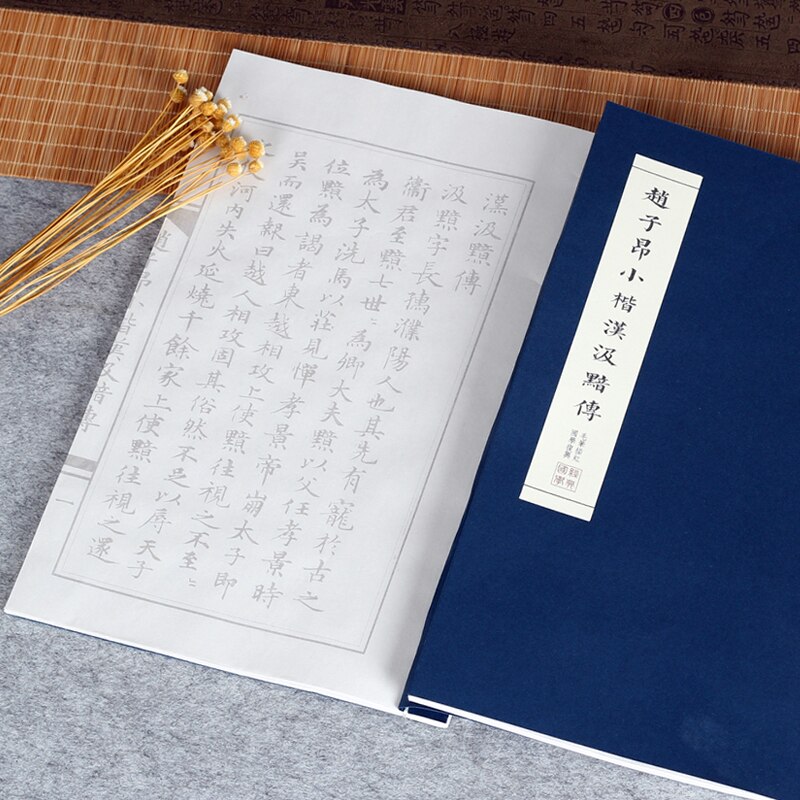 漢汲黯傳
汲黯字長孺濮陽人也其先有寵於古之
衛君至黯七世〻為卿大夫黯以父任孝景時
為太子洗馬以莊見憚孝景帝崩太子即
位黯為謁者東越相攻上使黯往視之不至〻
吳而還報曰越人相攻固其俗然不足以辱天子
河內失火延燒千餘家上使黯往視之還
趙子昂小楷漢汲黯傳
一
趙子昂小楷漢汲黯傳